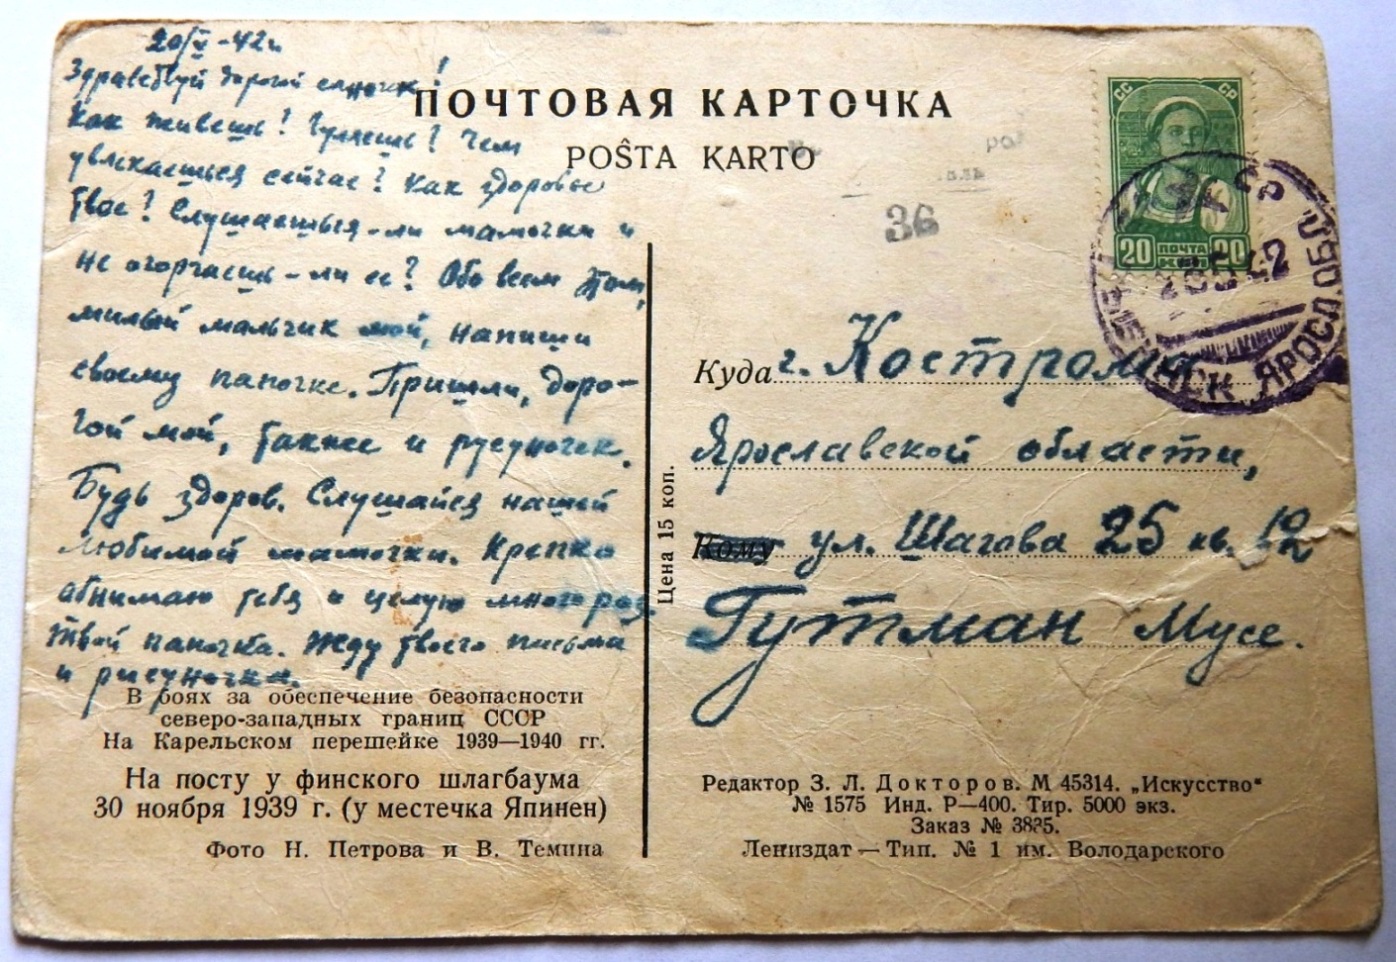 20/V-42г.
Здравствуй дорогой сыночек!
Как живешь? Гуляешь? Чем
увлекаешься сейчас? Как здоровье
твое? Слушаешься-ли мамочки и
не огорчаешь-ли ее? Обо всем этом,
милый мальчик мой, напиши
своему папочке. Пришли, доро-
гой мой, также и рисуночек.
Будь здоров. Слушайся нашей
любимой мамочки. Крепко
обнимаю тебя и целую много раз.
Твой папочка. Жду твоего письма
и рисуночка.
В боях за обеспечение безопасности
северо-западных границ СССР
На Карельском перешейке 1939—1940 гг.
На посту у финского шлагбаума
30 ноября 1939 г. (у местечка Япинен)
Фото Н. Петрова и В. Темина
ПОЧТОВАЯ КАРТОЧКА
POŜTA KARTO
36
СС СР
20 ПОЧТА 20
КОП
42
ЯРОСЛ.ОБЛ
Цена 15 коп.
Куда г. Кострома
Ярославской области,
Кому ул. Шагова 25 кв. 12
Гутман Мусе.
Редактор З. Л. Докторов. М 45314. „Искусство“
№ 1575 Инд. Р—400. Тир. 5000 экз.
Заказ № 3835.
Лениздат — Тип. № 1 им. Володарского